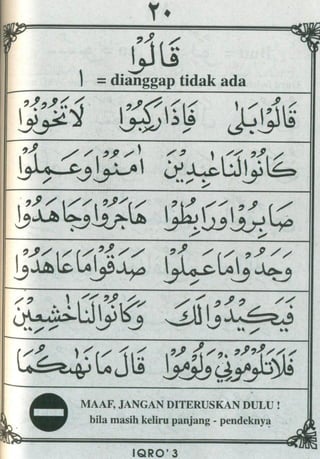 ٢٠
قَالُوْا
ا = dianggap tidak ada
قَالُوْابَلٰى فَاِذَارَكِبُوْا لَاتَخُوْنُوْا
كَانُوْالَنَاعٰبِدِيْنَ اٰمَنُوْاوَعَمِلُوْا
صَابِرُوْاوَرَابِطُوْا هَاجَرُوْاوَجَاهَدُوْا
وَجَدُوْامَاعَمِلُوْا صَدَقُوْامَاعَاهَدُوْا
فَيَكِيْدُوْالَكَ وَكَانُوْالَنَاخٰشِعِيْنَ
فَلَاتَلُوْمُوْنِيْ وَلُوْمُوْا قَالَ مَانَهٰىكُمَا
MAAF, JANGAN DITERUSKAN DULU !
bila masih keliru panjang - pendeknya
IQRO' 3